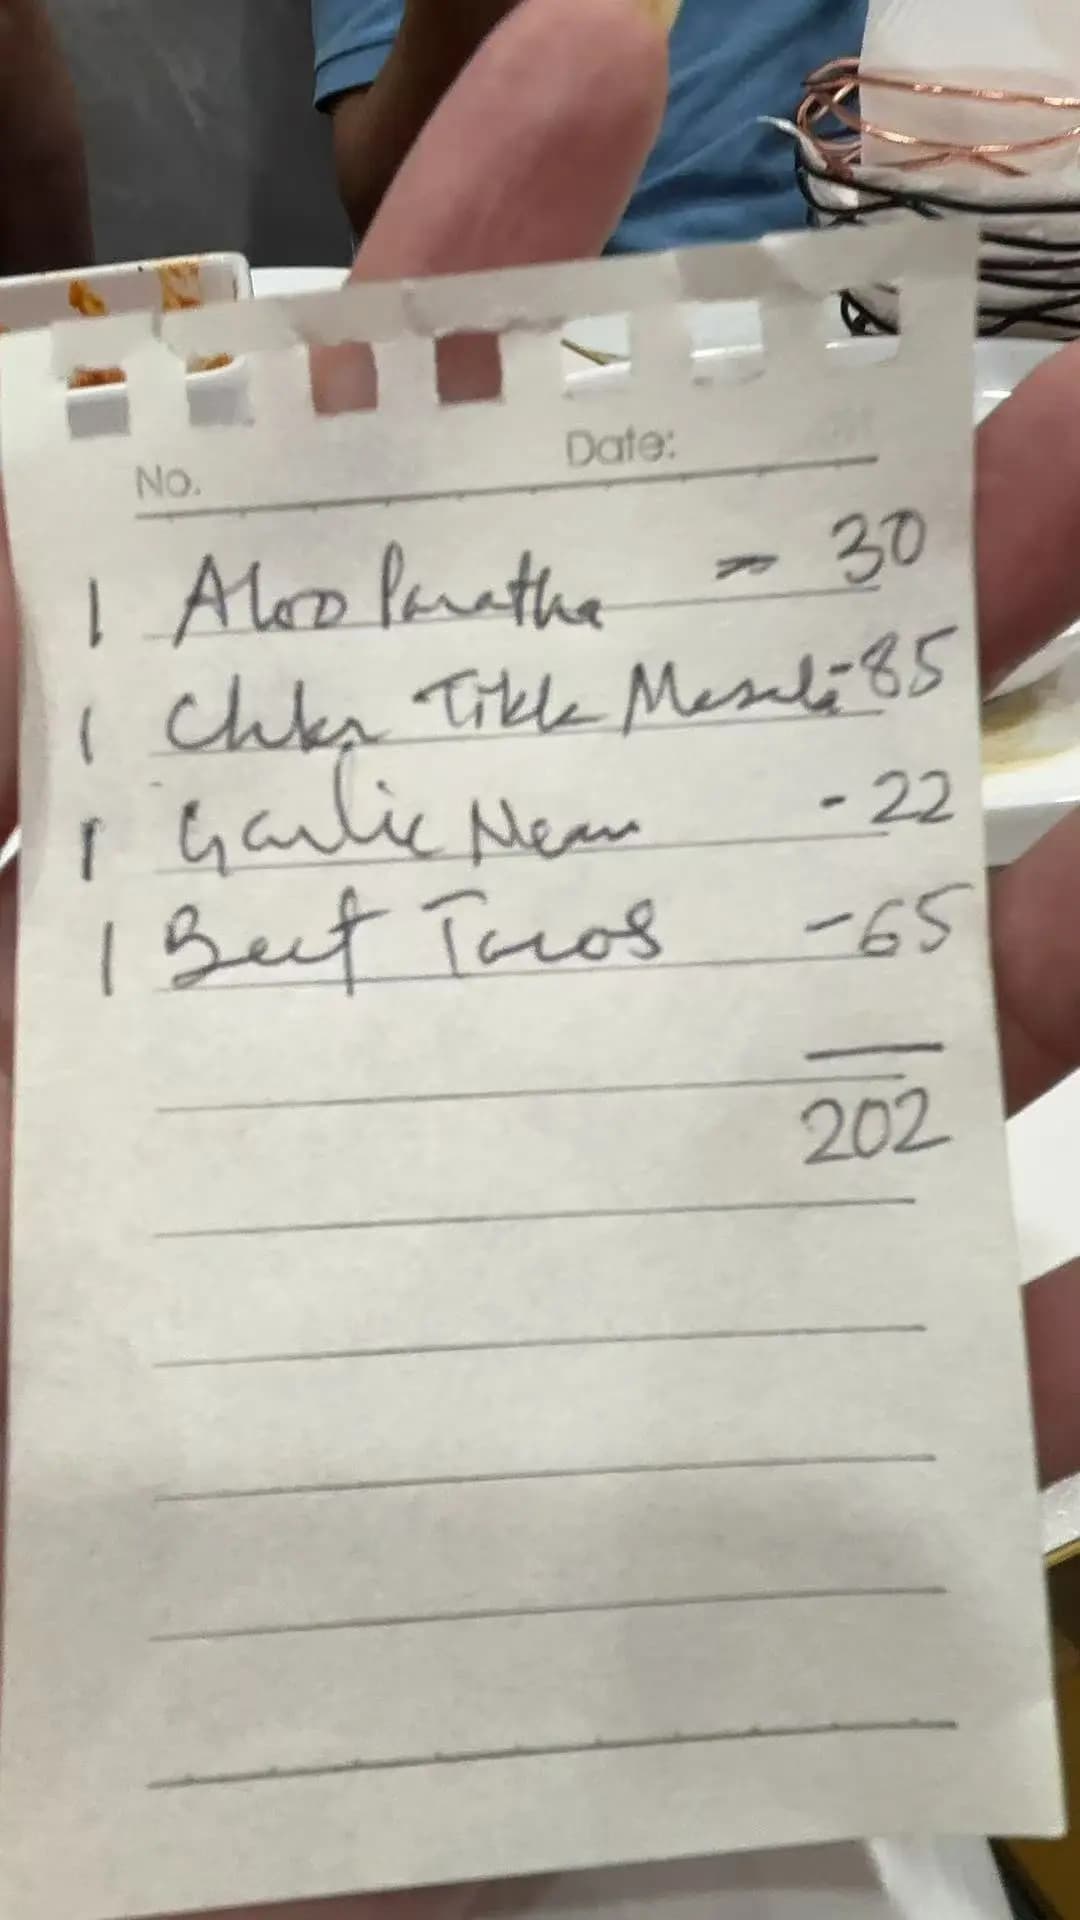 No. Date:
1 Aloo Paratha - 30
1 Chkn Tikka Masala - 85
1 Garlic Naan - 22
1 Beef Tacos - 65
202